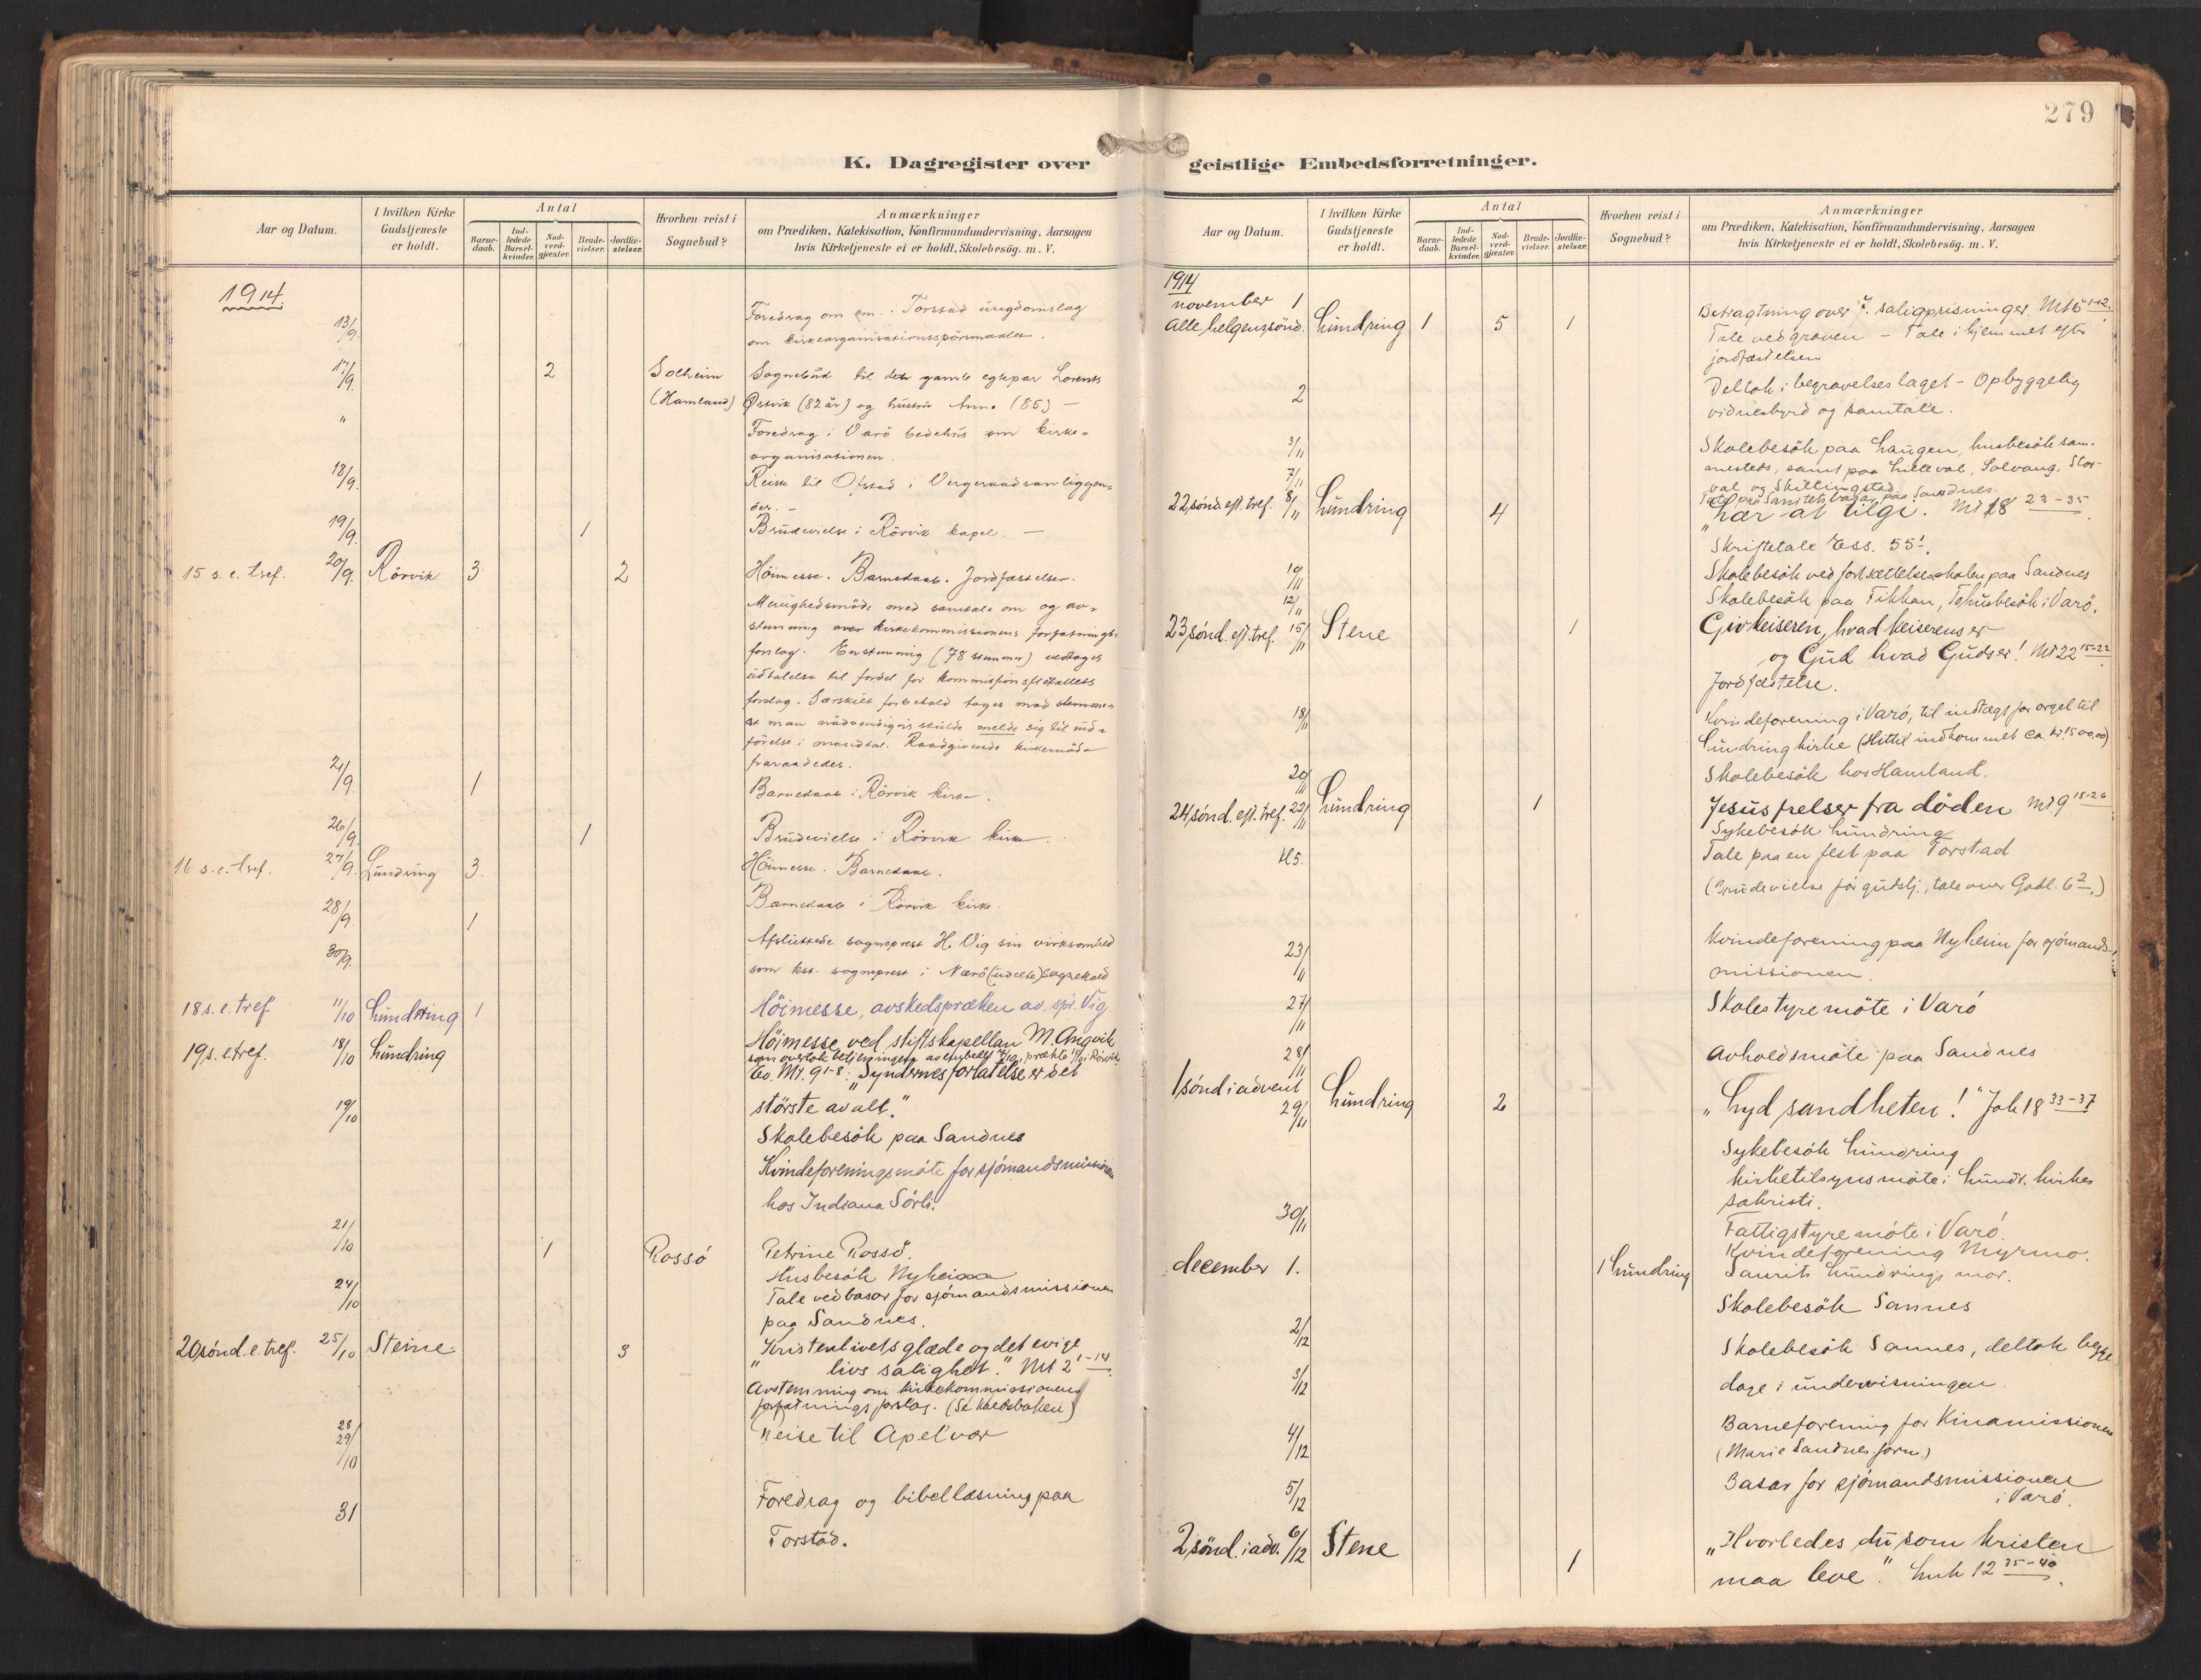 279
K. Dagregister over geistlige Embedsforretninger.
Aar og Datum.
I hvilken Kirke Gudstjeneste er holdt.
Antal
Barne-daab.
Ind-ledede Barsel-kvinder.
Nad-verd-gjæster.
Brude-vielser.
Jordfæ-stelser.
Hvorhen reist i Sognebud?
Anmærkninger
om Prædiken, Katekisation, Konfirmandundervisning, Aarsagen
hvis Kirketjeneste ei er holdt, Skolebesög. m. V.
1914.
13/9. Foredrag om em. i Torstad ungdomslag
om kirkeorganisationsspörsmaalet.
17/9. 2 Solheim Sognebud til det gamle egtepar Lorents
(Hamland) Østvik (82 år) og hustru Anna (85) —
" Foredrag i Varö bedehus om kirke-
organisationen.
18/9. Reise til Ofstad i Vergeraadsanliggen-
der. -
19/9. 1 Brudevielse i Rörvik kapel. —
15 s. e. tref. 20/9. Rörvik 3 2 Höimesse. Barnedaab. Jordfæstelser.
Menighedsmöde med samtale om og av-
stemning over kirkekommissionens forfatnings-
forslag. Enstemmig (78 stemmer) vedtoges
udtalelse til fordel for kommissionsflertallets
forslag. Særskilt forbehold toges mod
at man nödvendigvis skulde melde sig til ind-
förelse i mandtal. Raadgivende kirkemöde
fraraadedes.
21/9 1 Barnedaab i Rörvik kirke.
26/9. 1 Brudevielse i Rörvik kirke.
16 s. e. tref. 27/9. Lundring 3. Höimesse. Barnedaab.
28/9. 1 Barnedaab i Rörvik kirke.
30/9. Afsluttede sogneprest H. Vig sin virksomhed
som kst. sogneprest i Nærö (udelte) sognekald
18 s. e. tref 11/10 Lundring 1 Höimesse, avskedspræken av spr. Vig
19 s. e. tref. 18/10 Lundring Höimesse ved stiftskapellan M. Angvik
som overtok betjeningen av embedet
Ev. Mt. 9 1-8: „Syndernes forlatelse er det
19/10 störste av alt."
Skolebesök paa Sandnes
Kvindeforeningsmöte for sjömandsmissionen
hos Indiana Sörli.
21/10 1 Rossö Petrine Rossö.
Husbesök Nyheim
24/10 Tale ved basar for sjömandsmissionen
paa Sandnes.
20 sönd. e. tref. 25/10 Steine 3 „Kristenlivets glæde og det evige
livs salighet." Mt 2 1-14.
Avstemning om kirkekommissionens
forfatningsforslag. (Se kaldsboken)
28 29/10 Reise til Apelvær
31 Foredrag og bibellæsning paa
Torstad.
Aar og Datum.
I hvilken Kirke Gudstjeneste er holdt.
Antal
Barne-daab.
Ind-ledede Barsel-kvinder.
Nad-verd-gjæster.
Brude-vielser.
Jordfæ-stelser.
Hvorhen reist i Sognebud?
Anmærkninger
om Prædiken, Katekisation, Konfirmandundervisning, Aarsagen
hvis Kirketjeneste ei er holdt, Skolebesög. m. V.
1914
november 1
Alle helgenssönd. Lundring 1 5 1 Betragtning over J. saligprisninger. Mt 5 1-12.
Tale ved graven — Tale i hjemmet efter
jordfæstelsen
2 Deltok i begravelseslaget - Opbyggelig
vidnesbyrd og samtale.
3/11 Skolebesök paa Haugen, husbesök sam-
mesteds, samt paa Lilleval, Solvang, Stor-
val og Skillingstad.
7/11 Tale paa Sanitetsbasar paa Sandnes.
22 sönd. eft. tref. 8/11 Lundring 4 „Lær at tilgi. Mt 18 23-35.
Skriftetale Ess. 55 1.
10/11 Skolebesök ved fortsættelsesskolen paa Sandnes
12/11 Skolebesök paa Fikkan, husbesök i Varö.
23 sönd. eft. tref. 15/11 Stene 1 Giv keiseren, hvad keiserens er
og Gud hvad Guds er! Mt 22 15-22.
Jordfæstelse.
18/11 Kvindeforening i Varö, til indtægt for orgel til
Lundring kirke (Hittil indkommet ca. kr. 1500,00)
20/11 Skolebesök hos Hamland.
24 sönd. eft. tref. 22/11 Lundring 1 Jesus frelser fra döden Mt 9 18-26
Sykebesök Lundring
Tale paa en fest paa Torstad
(Brudevielse för gudstj., tale over Gal. 6 2.)
23/11 Kvindeforening paa Nyheim for sjömands-
missionen.
27/11 Skolestyremöte i Varö
28/11 Avholdsmöte paa Sandnes
1 sönd i advent 29/11 Lundring 2 „Lyd sandheten!" Joh 18 33-37
Sykebesök Lundring
Kirketilsynsmöte i Lundr. kirkes
sakristi.
30/11 Fattigstyremöte i Varö.
Kvindeforening Myrmo.
december 1. 1 Lundring Laurits Lundrings mor.
Skolebesök Sannes
2/12 Skolebesök Sannes, deltok begge
3/12 dage i undervisningen.
4/12 Barneforening for Kinamissionen
(Marie Sandnes. forn.)
5/12 Basar for sjömandsmissionen
i Varö.
2 sönd. i adv. 6/12 Stene 1 „Hvorledes du som kristen
maa leve". Luk 12 35-40.